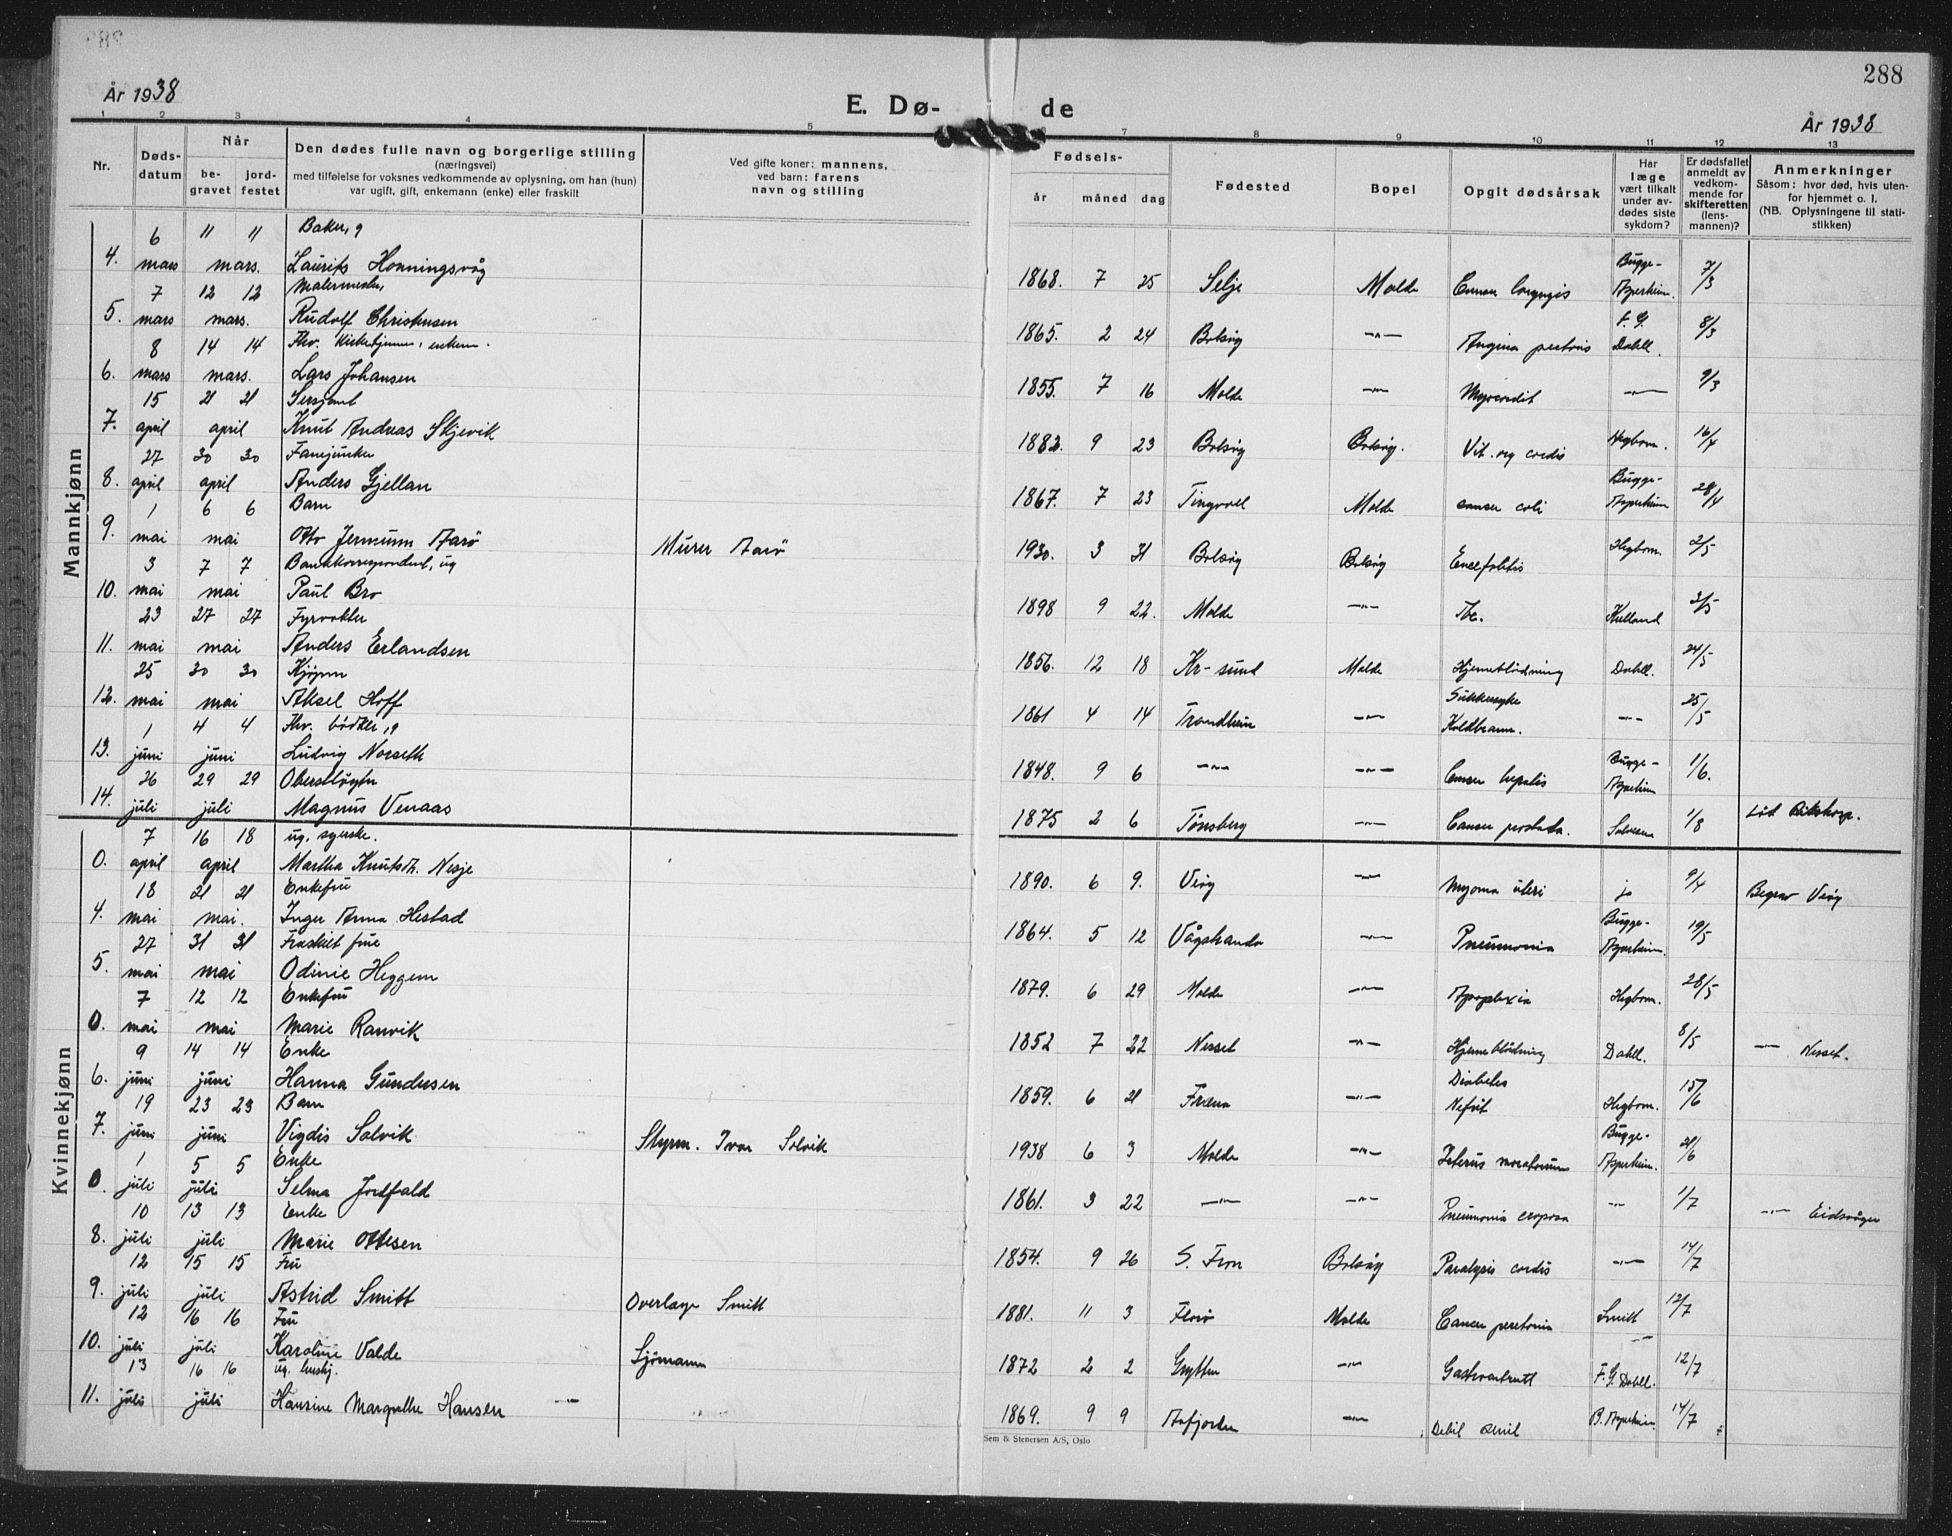 288
År 1938
E. Dø-
de
År 1938
1 2 3 4 5 6 7 8 9 10 11 12 13
Nr.
Døds-
datum
Når
be-
gravet
jord-
festet
Den dødes fulle navn og borgerlige stilling
(næringsvei)
med tilføielse for voksnes vedkommende av oplysning, om han (hun)
var ugift, gift, enkemann (enke) eller fraskilt
Ved gifte koner: mannens,
ved barn: farens
navn og stilling
Fødsels-
år måned dag
Fødested
Bopel
Opgit dødsårsak
Har
læge
vært tilkalt
under av-
dødes siste
sykdom?
Er dødsfallet
anmeldt av
vedkom-
mende for
skifteretten
(lens-
mannen)?
Anmerkninger
Såsom: hvor død, hvis uten-
for hjemmet o. l.
(NB. Oplysningene til stati-
stikken)
Mannkjønn
6 11 11 Baker, g
4. mars mars. Laurits Honningsvåg 1868. 7 25 Selje Molde Cancer laryngis Bugge-Asperheim. 7/3
7 12 12 Malermester,
5. mars mars. Rudolf Christensen 1865. 2 24 Bolsøy —"— Angina pectoris F. G. Dahll. 8/3
8 14 14 Fhv. kirketjener, enkem.
6. mars mars. Lars Johansen 1855. 7 16 Molde —"— Myocardit —"— 9/3
15 21 21 Sersjant
7. april april Knut Andreas Skjevik 1882. 9 23 Bolsøy Bolsøy. Vit. org cordis Hegbom. 16/4
27 30 30 Fanejunker
8. april april Anders Gjellan 1867. 7 23 Tingvoll Molde cancer coli Bugge-Asperheim 28/4
1 6 6 Barn
9. mai mai Otto Jermunn Aarø Murer Aarø 1930. 3 31 Bolsøy Bolsøy Encefalitis Hegbom. 2/5
3 7 7 Bankkorrespondent, ug
10. mai mai Paul Bro 1898 9 22. Molde —"— Tbc. Kulland 3/5
23 27 27 Fyrvokter
11. mai mai Anders Erlandsen 1856. 12 18 Kr-sund Molde Hjerneblödning Dahll. 24/5
25 30 30 Kjøpm
12. mai mai Aksel Hoff 1861 4 14 Trondheim —"— Sukkersyke Koldbrann. —"— 25/5
1 4 4 Fhv. bødker, g
13. juni juni Ludvig Norseth 1848. 9 6 —"— —"— Cancer hepatis Bugge-Asperheim 1/6.
26 29 29 Oberstløytn
14. juli juli Magnus Venaas 1875 2 6 Tønsberg —"— Cancer prostata. 1/8
Kvinnekjønn
7 16 18 ug. syerske.
0. april april Martha Knutsdt. Nesje 1890. 6 9. Veøy —"— Myoma uteri ja 9/4 Begrav Veøy
18 21 21 Enkefru
4. mai mai. Inger Anna Hestad 1864. 5 12 Vågstranda —"— Pneumonia Bugge-Asperheim. 19/5
27 31 31 Fraskilt frue
5. mai mai Odinie Heggem 1879. 6 29 Molde —"— Apoplexia Hegbom. 28/5
7 12 12 Enkefru
0. mai mai Marie Ranvik 1852 7 22 Nesset —"— Hjerneblödning Dahll. 8/5 —"— Nesset.
9 14 14 Enke
6. juni juni Hanna Gundersen 1859. 6 21 Fræna —"— Diabetes Nefrit Hegbom. 15/6
19 23 23 Barn
7. juni juni Vigdis Solvik Styrm. Ivar Solvik 1938 6 3 Molde —"— Icterus neonatorum Bugge-Asperheim. 21/6
1 5 5 Enke
0. juli juli Selma Jordfald 1861. 3 22 —"— —"— Pneumonia crouposa —"— 1/7 —"— Eidsvågen
10 13 13 Enke
8. juli juli Marie Ottesen 1854. 9 26 S. Fron Bolsøy Paralysis cordis —"— 14/7
12 15 15 Fru
9. juli juli Astrid Smitt Overlæge Smitt 1881. 11 3 Florø Molde Cancer peritonia Smitt 12/7
12 16 16 Fru
10. juli juli Karoline Valde Sjømann 1872 2 2 Grytten —"— F. G. Dahll. 12/7
13 16 16 ug. hushj.
11. juli juli Hansine Margrethe Hansen —"— 1869. 9 9 Aafjorden —"— Debil senil B. Asperheim. 14/7
Sem & Stenersen A/S, Oslo